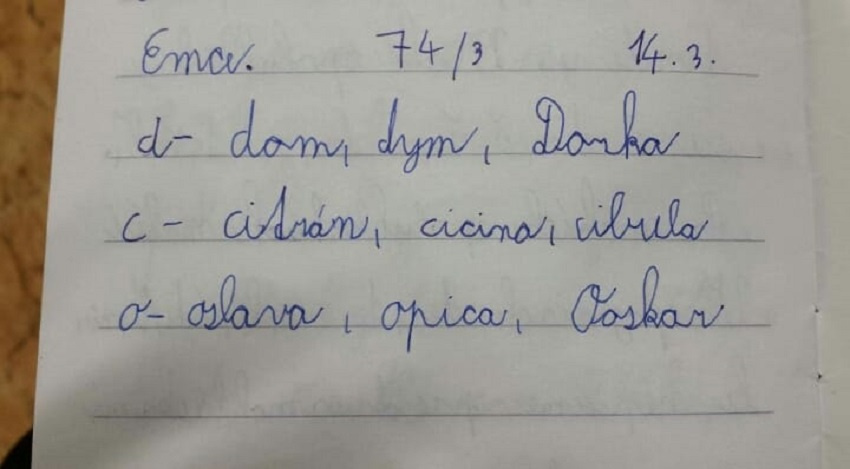 Ema. 74/3 14.3.
d- dom, dym, Dorka
c - citrón, cicina, cibula
o- oslava, opica, Ooskar